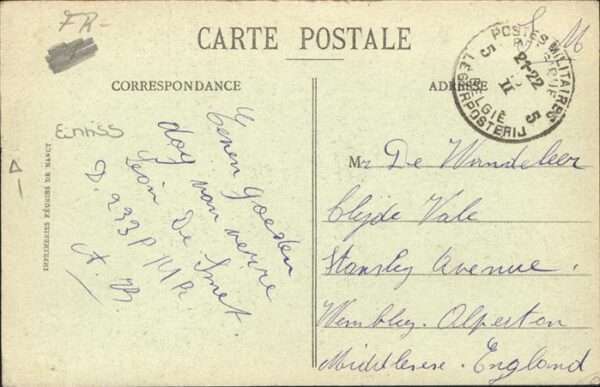 FR-
S M
CARTE POSTALE
CORRESPONDANCE
ADRESSE
POSTES MILITAIRES
BELGIQUE
21-22
II
5
5
BELGIË
LEGERPOSTERIJ
Eenen goeden
dag van verre
Léon De Smet.
D. 233 P MR
A. B
IMPRIMERIES RÉUNIES DE NANCY
Mr De Wandeleer
Clyde Vale
Stanley Avenue.
Wembley. Alperton
Middlesex. England